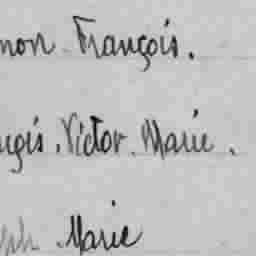 mon François.
ngis. Victor. Marie.
eph. Marie